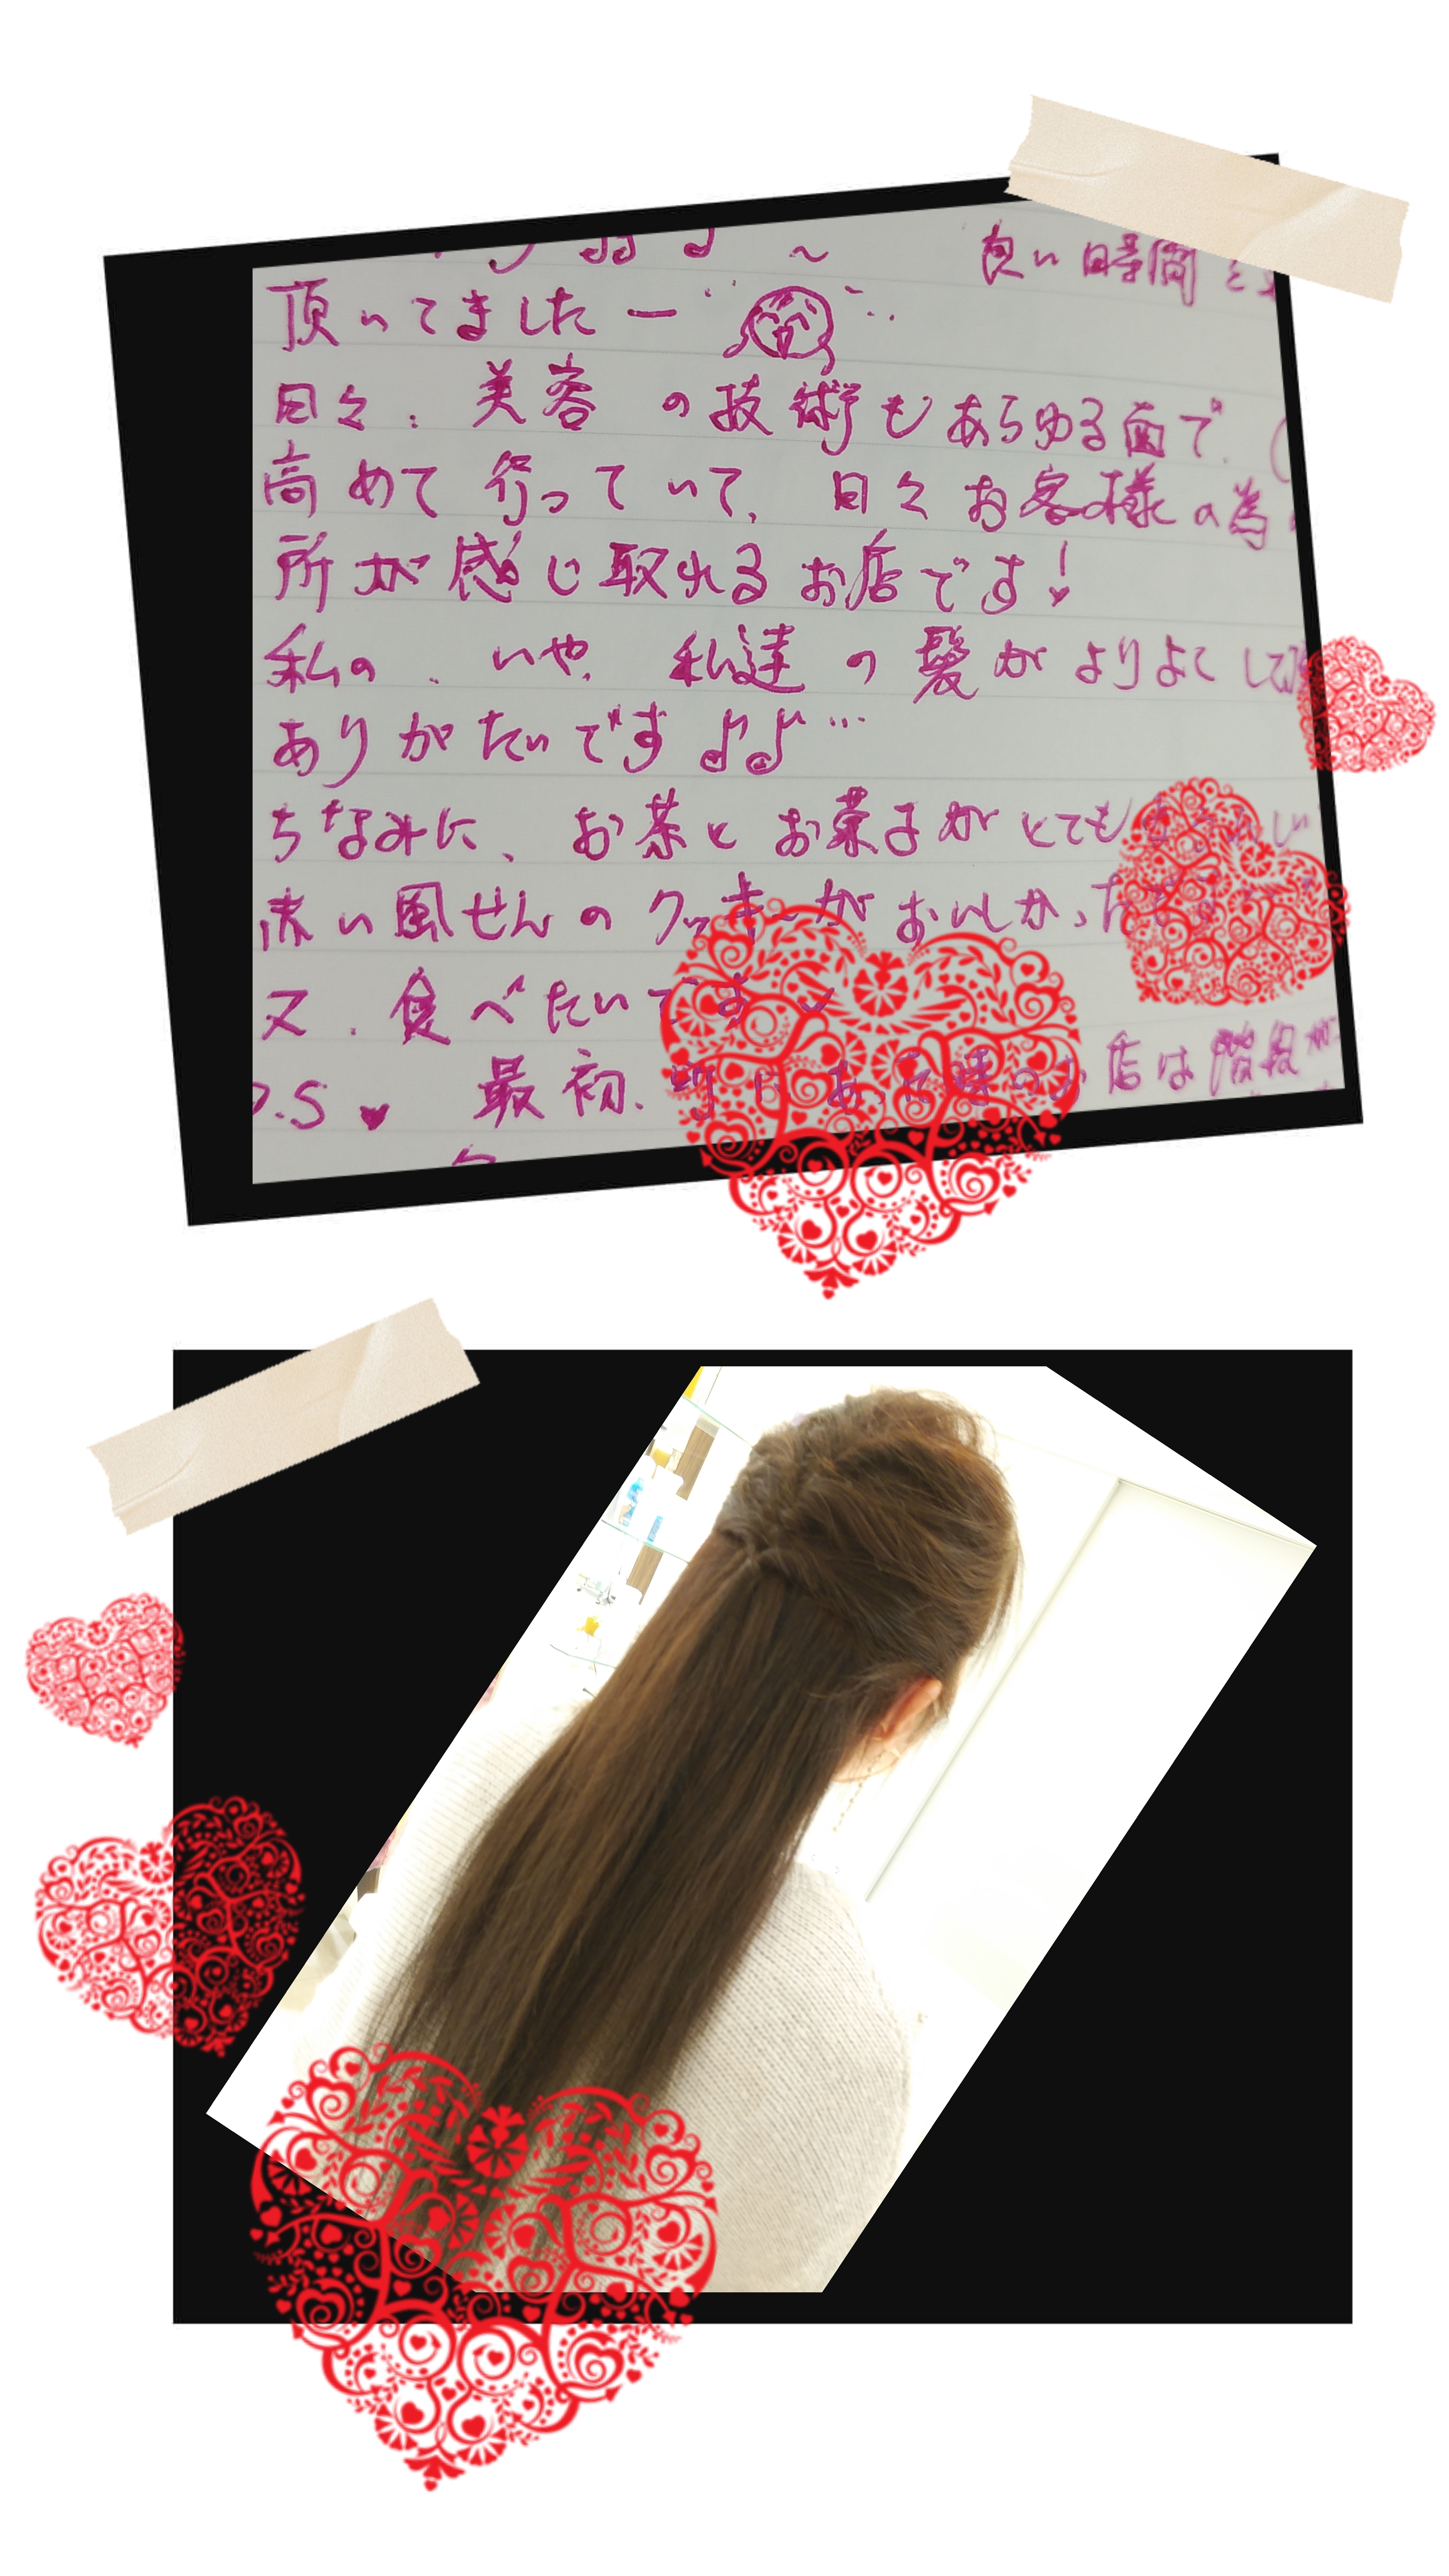 良い時間を
頂いてましたー
日々、美容の技術もあらゆる面で、(
高めて行っていて、日々お客様の為
所が感じ取れるお店です!
私の、いや、私達の髪がよりよくして
ありがたいです♪♪…
ちなみに、お茶とお菓子がとても
赤い風せんのクッキーがおいしかった
又、食べたいです
P.S ♥ 最初、町にあった様のお店は階段が